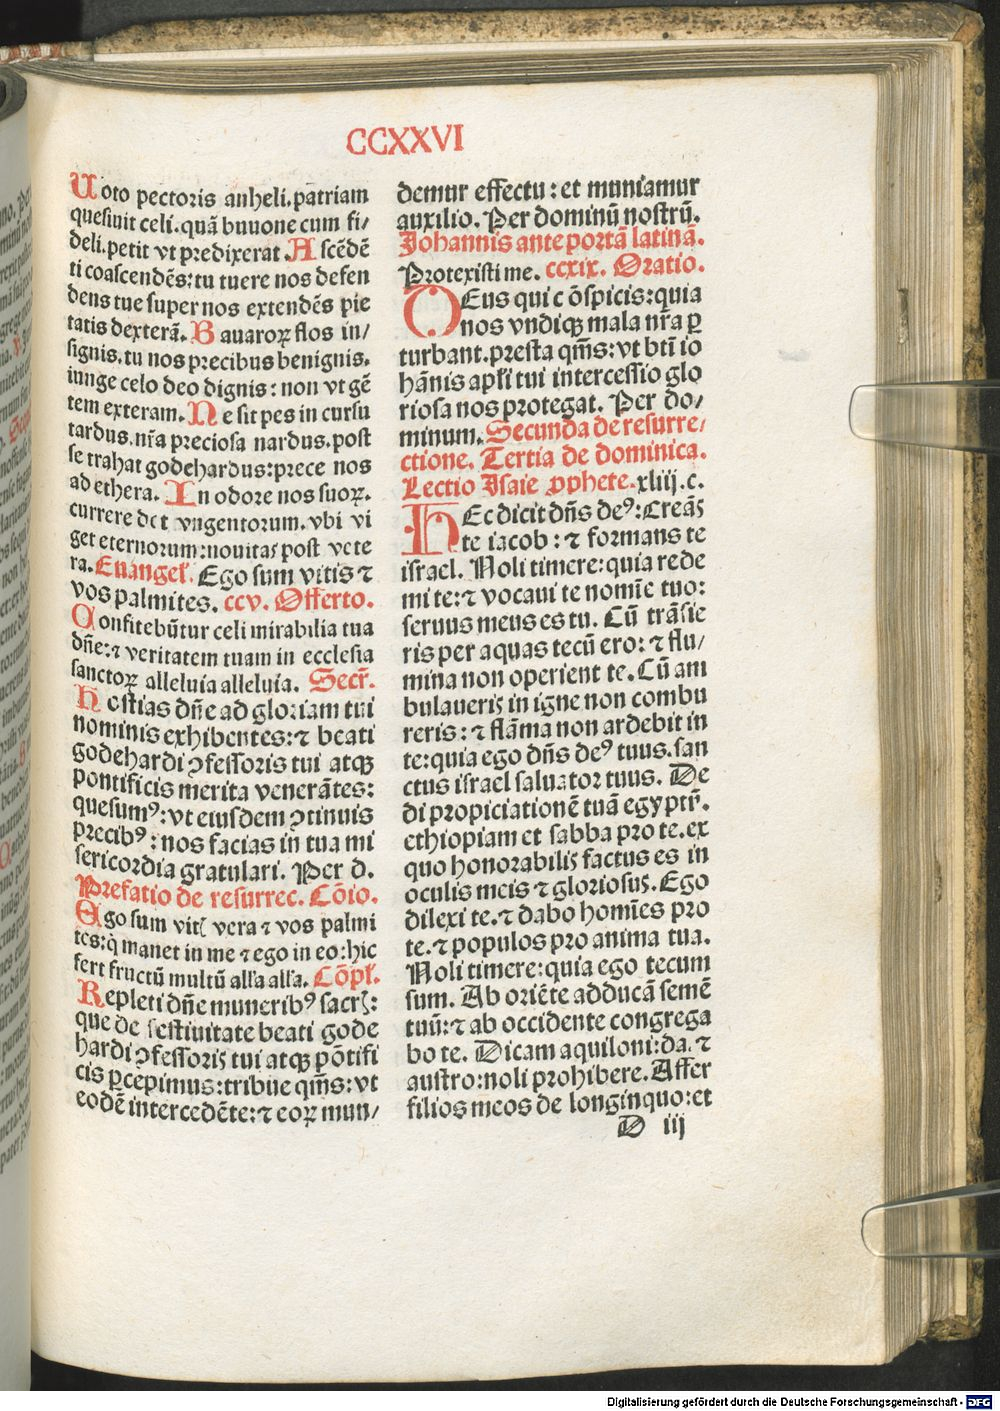 CCXXVI
Uoto pectoris anheli.patriam
quesiuit celi.quã bunone cum fi/
deli.petit vt predixerat.Ascẽdẽ
ti coascendẽs:tu tuere nos defen
dens tue super nos extendẽs pie
tatis dexterã.Bauaroꝝ flos in/
signis.tu nos precibus benignis.
iunge celo deo dignis: non vt gẽ
tem exteram.Ne sit pes in cursu
tardus.nr̃a preciosa nardus.post
se trahat godehardus:prece nos
ad ethera. In odore nos suoꝝ.
currere det vngentorum.vbi vi
get eternorum:nouitas post vete
ra.Euangeł. Ego sum vitis ⁊
vos palmites. ccv. Offerto.
Confitebũtur celi mirabilia tua
dñe:⁊ veritatem tuam in ecclesia
sanctoꝝ alleluia alleluia. Secr̃.
Hostias dñe ad gloriam tui
nominis exhibentes:⁊ beati
godehardi ꝯfessoris tui atqꝫ
pontificis merita venerãtes:
quesumꝰ:vt eiusdem ꝯtinuis
precibꝰ:nos facias in tua mi
sericordia gratulari. Per d.
Prefatio de resurrec. Cõio.
Ego sum vitꝭ vera ⁊ vos palmi
tes:q̇ manet in me ⁊ ego in eo:hic
fert fructũ multũ alła alła. Cõpł.
Repleti dñe muneribꝰ sacrꝭ:
que de festiuitate beati gode
hardi ꝯfessoris tui atqꝫ põtifi
cis ꝑcepimus:tribue qm̃s:vt
eodẽ intercedẽte:⁊ eoꝝ mun/
demur effectu:et muniamur
auxilio. Per dominũ nostrũ.
Johannis ante portã latinã.
Protexisti me. ccxix. Oratio.
DEus qui cõspicis:quia
nos vndiqꝫ mala nr̃a ꝑ
turbant.presta qm̃s:vt bt̃i io
hãnis apłi tui intercessio glo
riosa nos protegat. Per do/
minum.Secunda de resurre/
ctione. Tertia de dominica.
Lectio Isaie ꝓphete.xliij.c.
HEc dicit dñs deꝰ:Creãs
te iacob:⁊ formans te
israel. Noli timere:quia rede
mi te:⁊ vocaui te nomĩe tuo:
seruus meus es tu. Cũ trãsie
ris per aquas tecũ ero:⁊ flu/
mina non operient te.Cũ am
bulaueris in igne non combu
reris:⁊ flãma non ardebit in
te:quia ego dñs deꝰ tuus.san
ctus israel saluator tuus. De
di propiciationẽ tuã egyptũ.
ethiopiam et sabba pro te.ex
quo honorabilis factus es in
oculis meis ⁊ gloriosus.Ego
dilexi te.⁊ dabo homĩes pro
te.⁊ populos pro anima tua.
Noli timere:quia ego tecum
sum. Ab oriẽte adducã semẽ
tuũ:⁊ ab occidente congrega
bo te. Dicam aquiloni:da.⁊
austro:noli prohibere.Affer
filios meos de longinquo:et
D iij
Digitalisierung gefördert durch die Deutsche Forschungsgemeinschaft - DFG